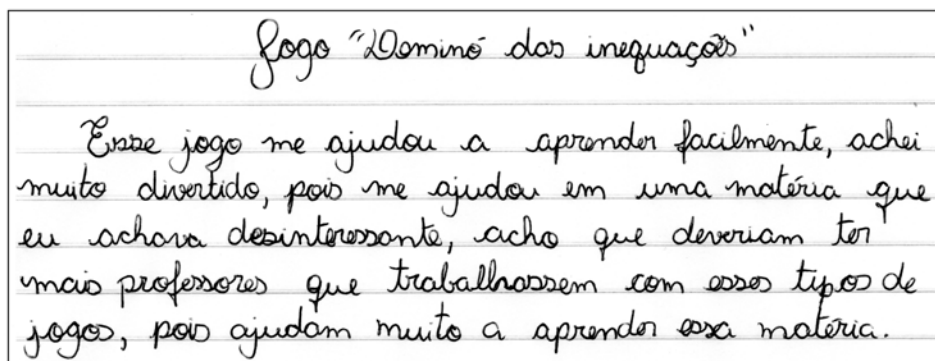 Jogo "Dominó das inequações"
Esse jogo me ajudou a aprender facilmente, achei
muito divertido, pois me ajudou em uma matéria que
eu achava desinteressante, acho que deveriam ter
mais professores que trabalhassem com esses tipos de
jogos, pois ajudam muito a aprender essa matéria.